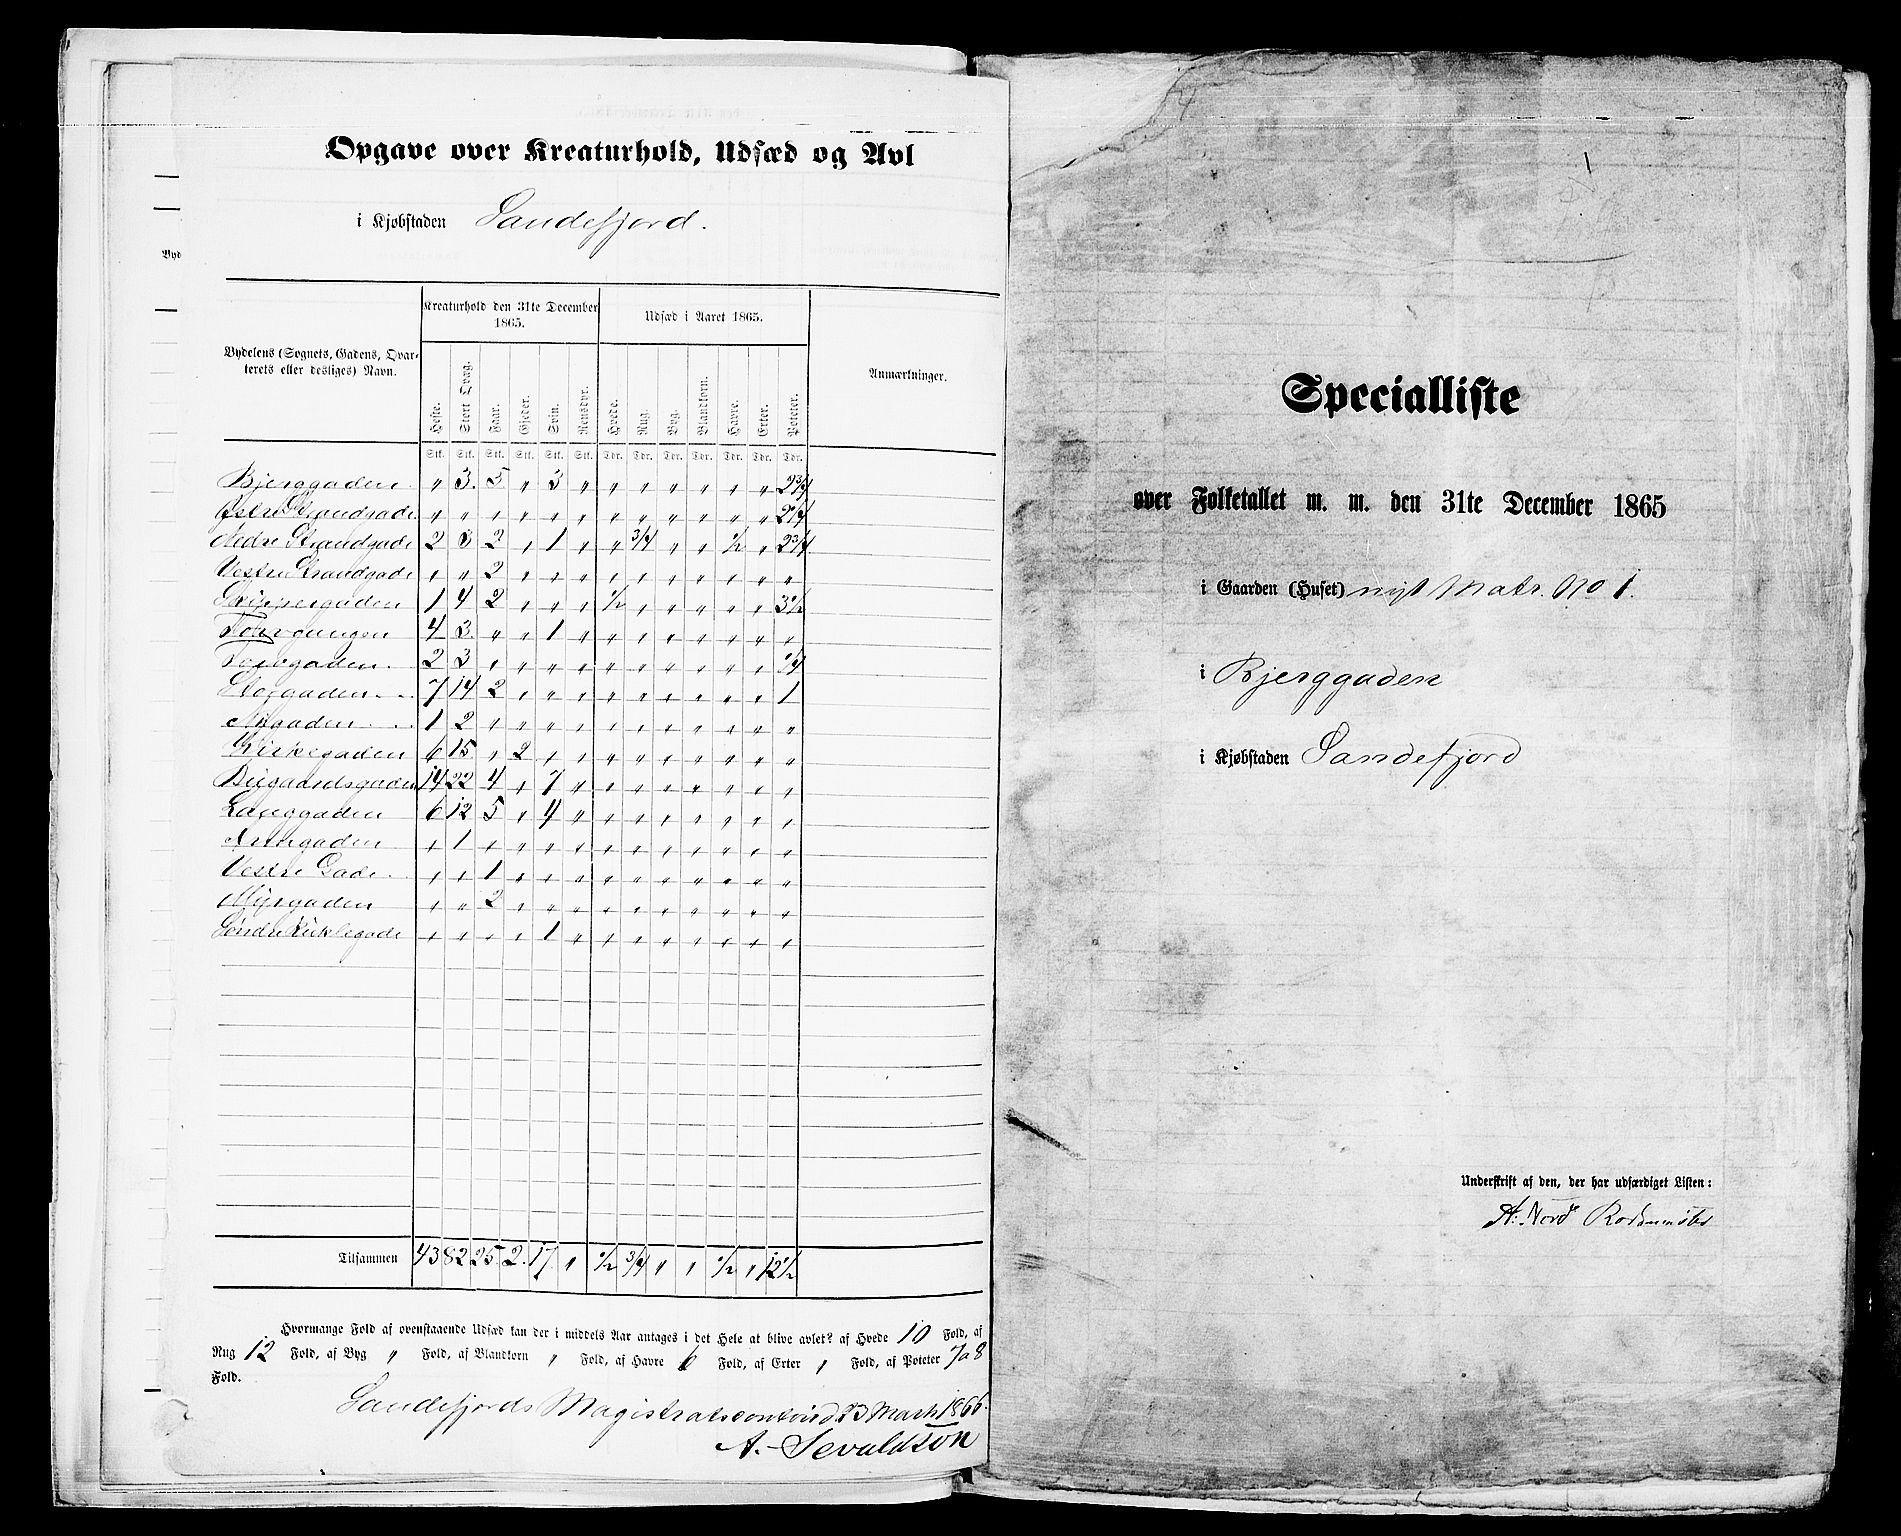 Opgave over Kreaturhold, Udsæd og Avl
i Kjøbstaden Sandefjord.
Byd
Bydelens (Sognets, Gadens, Qvarterets eller desliges) Navn.
Kreaturhold den 31te December 1865.
Udsæd i Aaret 1865.
Anmærkninger.
Heste. Stort Qvæg. Faar. Gjeder. Svin. Rensdyr. Hvede. Rug. Byg. Blandkorn. Havre. Erter. Poteter.
Stk. Stk. Stk. Stk. Stk. Stk. Tdr. Tdr. Tdr. Tdr. Tdr. Tdr. Tdr.
Bjerggaden. " 3. 5 " 3 " " " " " " " 2 3/4
Østre Strandgade " " " " " " " " " " " "
Nedre Strandgade 2 3 2 " 1 " " 3/4 " " 1/2 " 2 3/4
Vestre Strandgade " " 2 " " " " " " " " " "
Skippergaden 1 4 2 " " " 1/2 " " " " " 3 1/2
4 3. " " 1 " " " " " " " "
Torvgaden. 2 3 " " " " " " " " " "
Storgaden. 7 14 2 " " " " " " " " " 1
Aagaden. 1 2 " " " " " " " " " " "
Kirkegaden 6 15 " 2 " " " " " " " " "
Bugaardsgaden 14 22 4 " 7 " " " " " " " "
Langgaden 6 12 5 " 4 " " " " " " " "
" 1 " " " " " " " " " " "
Vestre Gade. " " 1 " " " " " " " " " "
Myrgaden " " 2 " " " " " " " " " "
Søndre Kirkegade " " " " 1 " " " " " " " "
Tilsammen 43 82 25. 2. 17. " 1/2 3/4 " " 1/2 " 12 1/2
Hvormange Fold af ovenstaaende Udsæd kan der i middels Aar antages i det Hele at blive avlet? af Hvede 10 Fold, af
Rug 12 Fold, af Byg " Fold, af Blandkorn " Fold, af Havre 6 Fold, af Erter " Fold, af Poteter 7 a 8
Fold.
Sandefjords Magistratscontoir d 23 Marts 1866.
A. Sevaldson
4
Specialliste
over Folketallet m. m. den 31te December 1865
i Gaarden (Huset) nyt Matr. No 1.
i Bjerggaden
i Kjøbstaden Sandefjord
Underskrift af den, der har udfærdiget Listen:
A. Nord